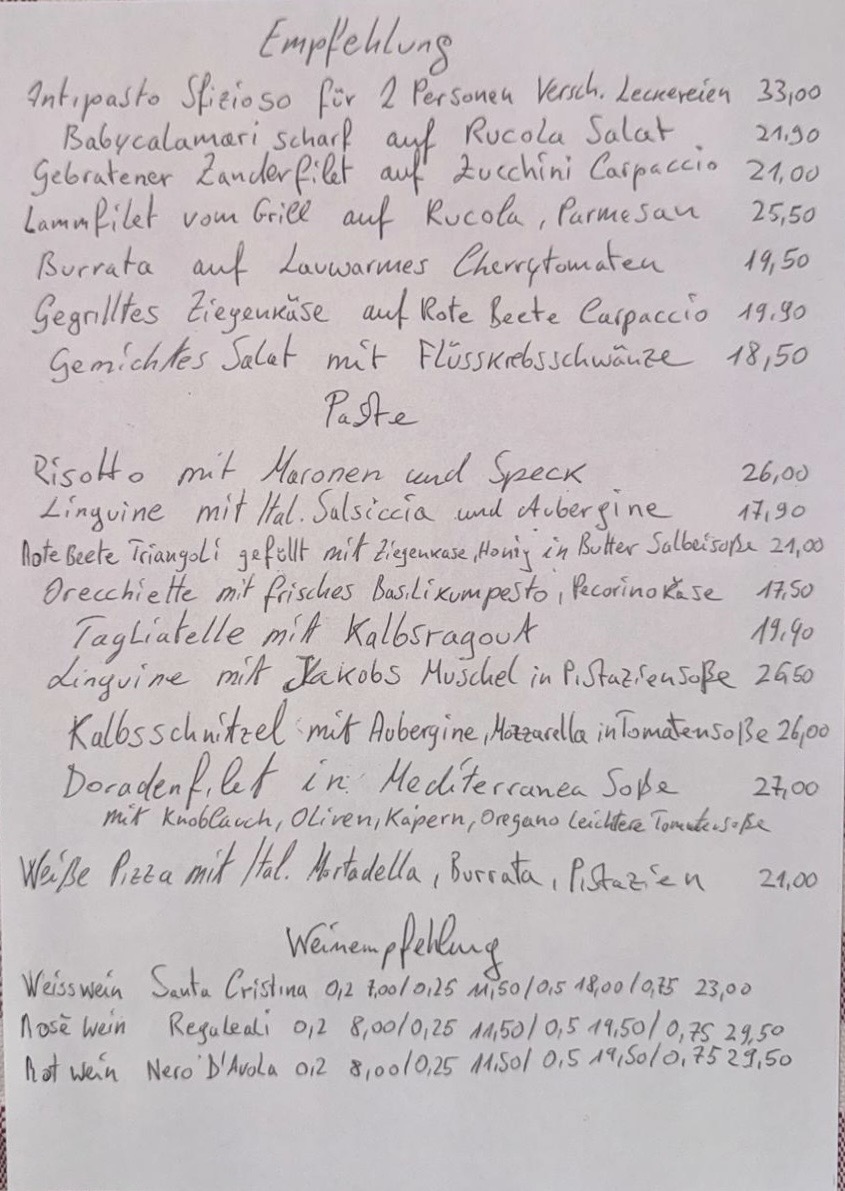 Empfehlung
Antipasto Sfizioso für 2 Personen Versch. Leckereien 33,00
Babycalamari scharf auf Rucola Salat 21,90
Gebratener Zanderfilet auf Zucchini Carpaccio 21,00
Lammfilet vom Grill auf Rucola, Parmesan 25,50
Burrata auf Lauwarmes Cherrytomaten 19,50
Gegrilltes Ziegenkäse auf Rote Beete Carpaccio 19,90
Gemichtes Salat mit Flüsskrebsschwänze 18,50
Paste
Risotto mit Maronen und Speck 26,00
Linguine mit Ital. Salsiccia und Aubergine 17,90
Rote Beete Triangoli gefüllt mit Ziegenkase, Honig in Butter Salbeisoße 21,00
Orecchiette mit frisches Basilikumpesto, Pecorinokäse 17,50
Tagliatelle mit Kalbsragout 19,90
Linguine mit Jakobs Muschel in Pistaziensoße
Kalbsschnitzel mit Aubergine, Mozzarella in Tomatensoße 26,00
Doradenfilet in Mediterranea Soße 27,00
mit Knoblauch, Oliven, Kapern, Oregano leichtere Tomatensoße
Weiße Pizza mit Ital. Mortadella, Burrata, Pistazien 21,00
Weinempfehlung
Weisswein Santa Cristina 0,2 7,00/0,25 11,50/0,5 18,00/0,75 23,00
Rosè Wein Regaleali 0,2 8,00/0,25 11,50/0,5 19,50/0,75 29,50
Rot wein Nero D'Avola 0,2 8,00/0,25 11,50/0,5 19,50/0,75 29,50